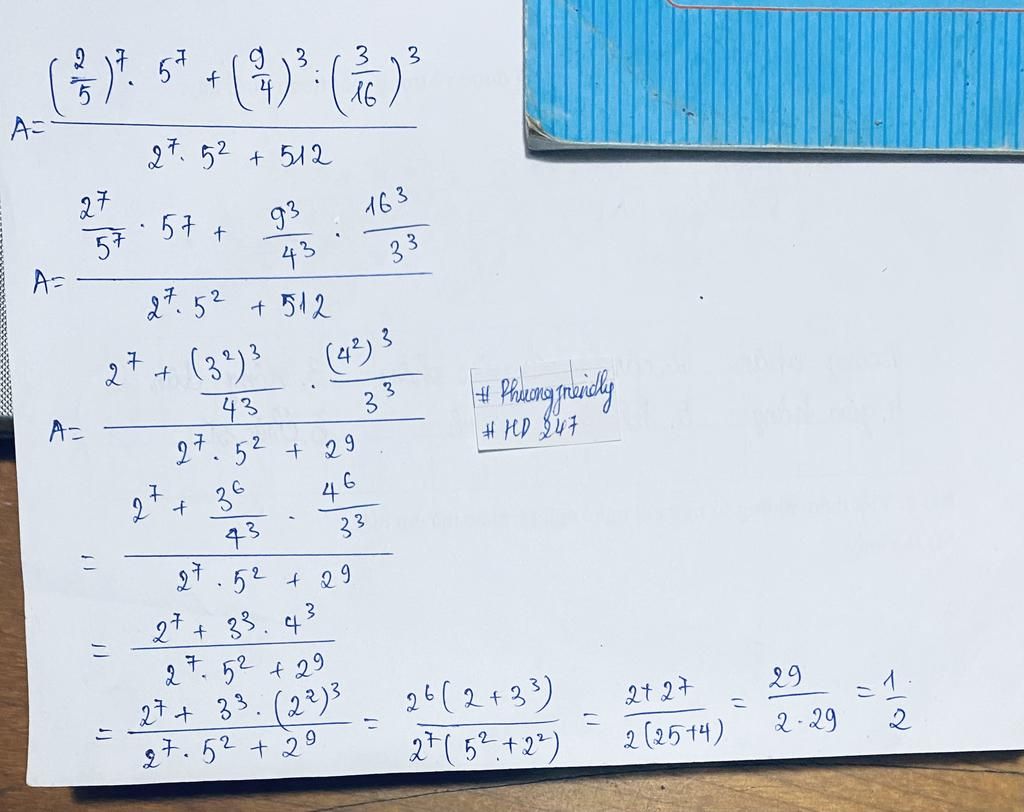 A = ((2/5)^7 . 5^7 + (9/4)^3 : (3/16)^3) / (2^7 . 5^2 + 512)
A = (2^7/5^7 . 57 + 9^3/4^3 . 16^3/3^3) / (2^7 . 5^2 + 512)
A = (2^7 + (3^2)^3/43 . (4^2)^3/3^3) / (2^7 . 5^2 + 2^9)
# Phuongfriendly
# HD 247
= (2^7 + 3^6/4^3 . 4^6/3^3) / (2^7 . 5^2 + 2^9)
= (2^7 + 3^3 . 4^3) / (2^7 . 5^2 + 2^9)
= (2^7 + 3^3 . (2^2)^3) / (2^7 . 5^2 + 2^9) = 2^6(2 + 3^3) / 2^7(5^2 + 2^2) = (2 + 27) / 2(25+4) = 29 / (2 . 29) = 1/2